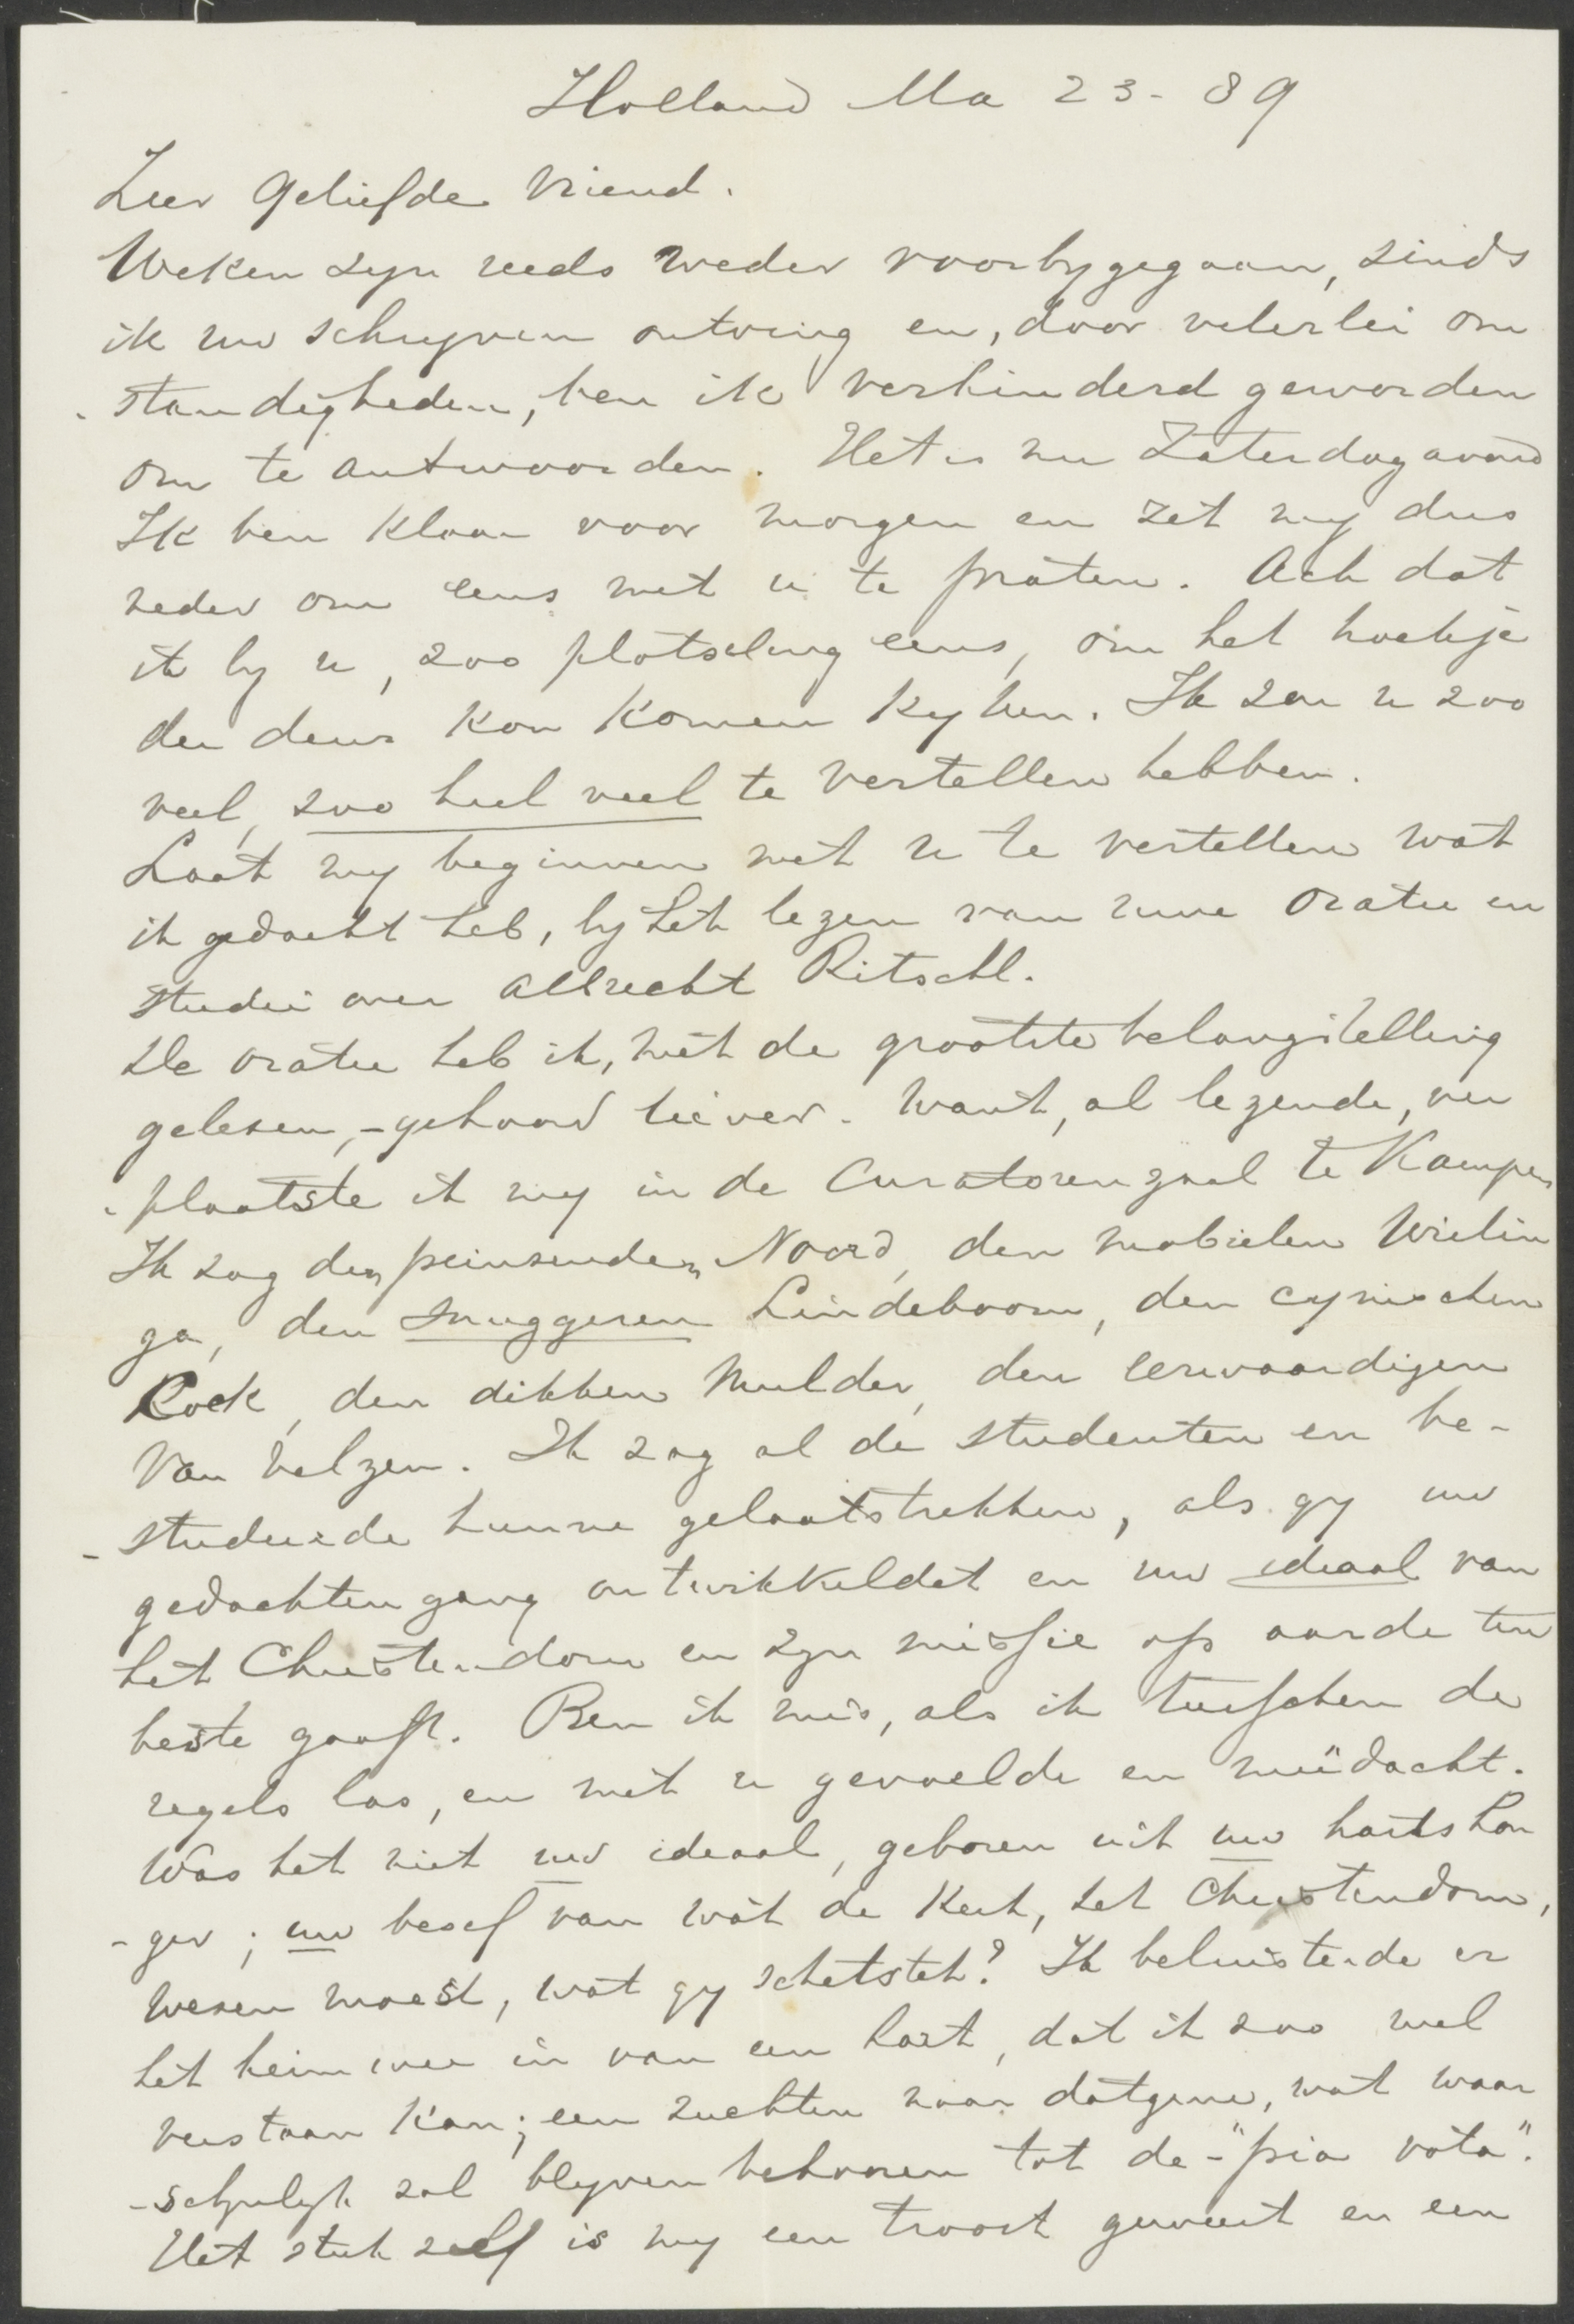 Holland Ma 23 - 89
Zeer Geliefde Vriend.
Weken zyn reeds weder voorbygegaan, sinds
ik uw schryven ontving en, door velerlei om
-standigheden, ben ik verhinderd geworden
om te antwoorden. Het is nu Zaterdagavond
Ik ben klaar voor morgen en zet my dus
neder om eens met u te praten. Ach dat
ik by u, zoo plotseling eens, om het hoekje
der deur kon komen kyken. Ik zou u zoo
veel, zoo heel veel te vertellen hebben.
Laat my beginnen met u te vertellen wat
ik gedacht heb, by het lezen van uwe Oratie en
studie over Albrecht Ritschl.
De oratie heb ik, met de grootste belangstelling
gelesen, - gehoord liever. Want, al lezende, ver
-plaatste ik my in de Curatorenzaal te Kampen
Ik zag den peinsenden Noord, den mobielen Wielin
ga, den snuggeren Lindeboom, den cynischen
Cock, den dikken Mulder, den eerwaardigen
Van Velzen. Ik zag al de studenten en be-
-studeerde hunne gelaatstrekken, als gy uw
gedachtengang ontwikkeldet en uw ideaal van
het Christendom en zyn missie op aarde ten
beste gaaft. Ben ik mis, als ik tusschen de
regels las, en met u gevoelde en meêdacht.
Was het niet uw ideaal, geboren uit uw harts hon
-ger; uw besef van wat de Kerk, het Christendom,
wesen moest, wat gy schetstet? Ik beluisterde er
het heimwee in van een hart, dat ik zoo wel
verstaan kan; een zuchten naar datgene, wat waar
-schynlyk zal blyven behooren tot de - "pia vota".
Het stuk zelf is my een troost geweest en een